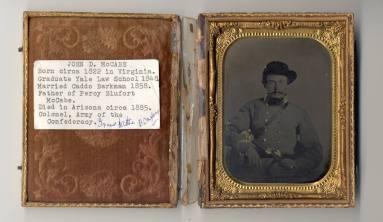 JOHN D. McCABE
Born circa 1822 in Virginia.
Graduate Yale Law School 1848.
Married Caddo Barkman 1858.
Father of Percy Blufort
McCabe.
Died in Arizona circa 1885.
Colonel, Army of the
Confederacy.